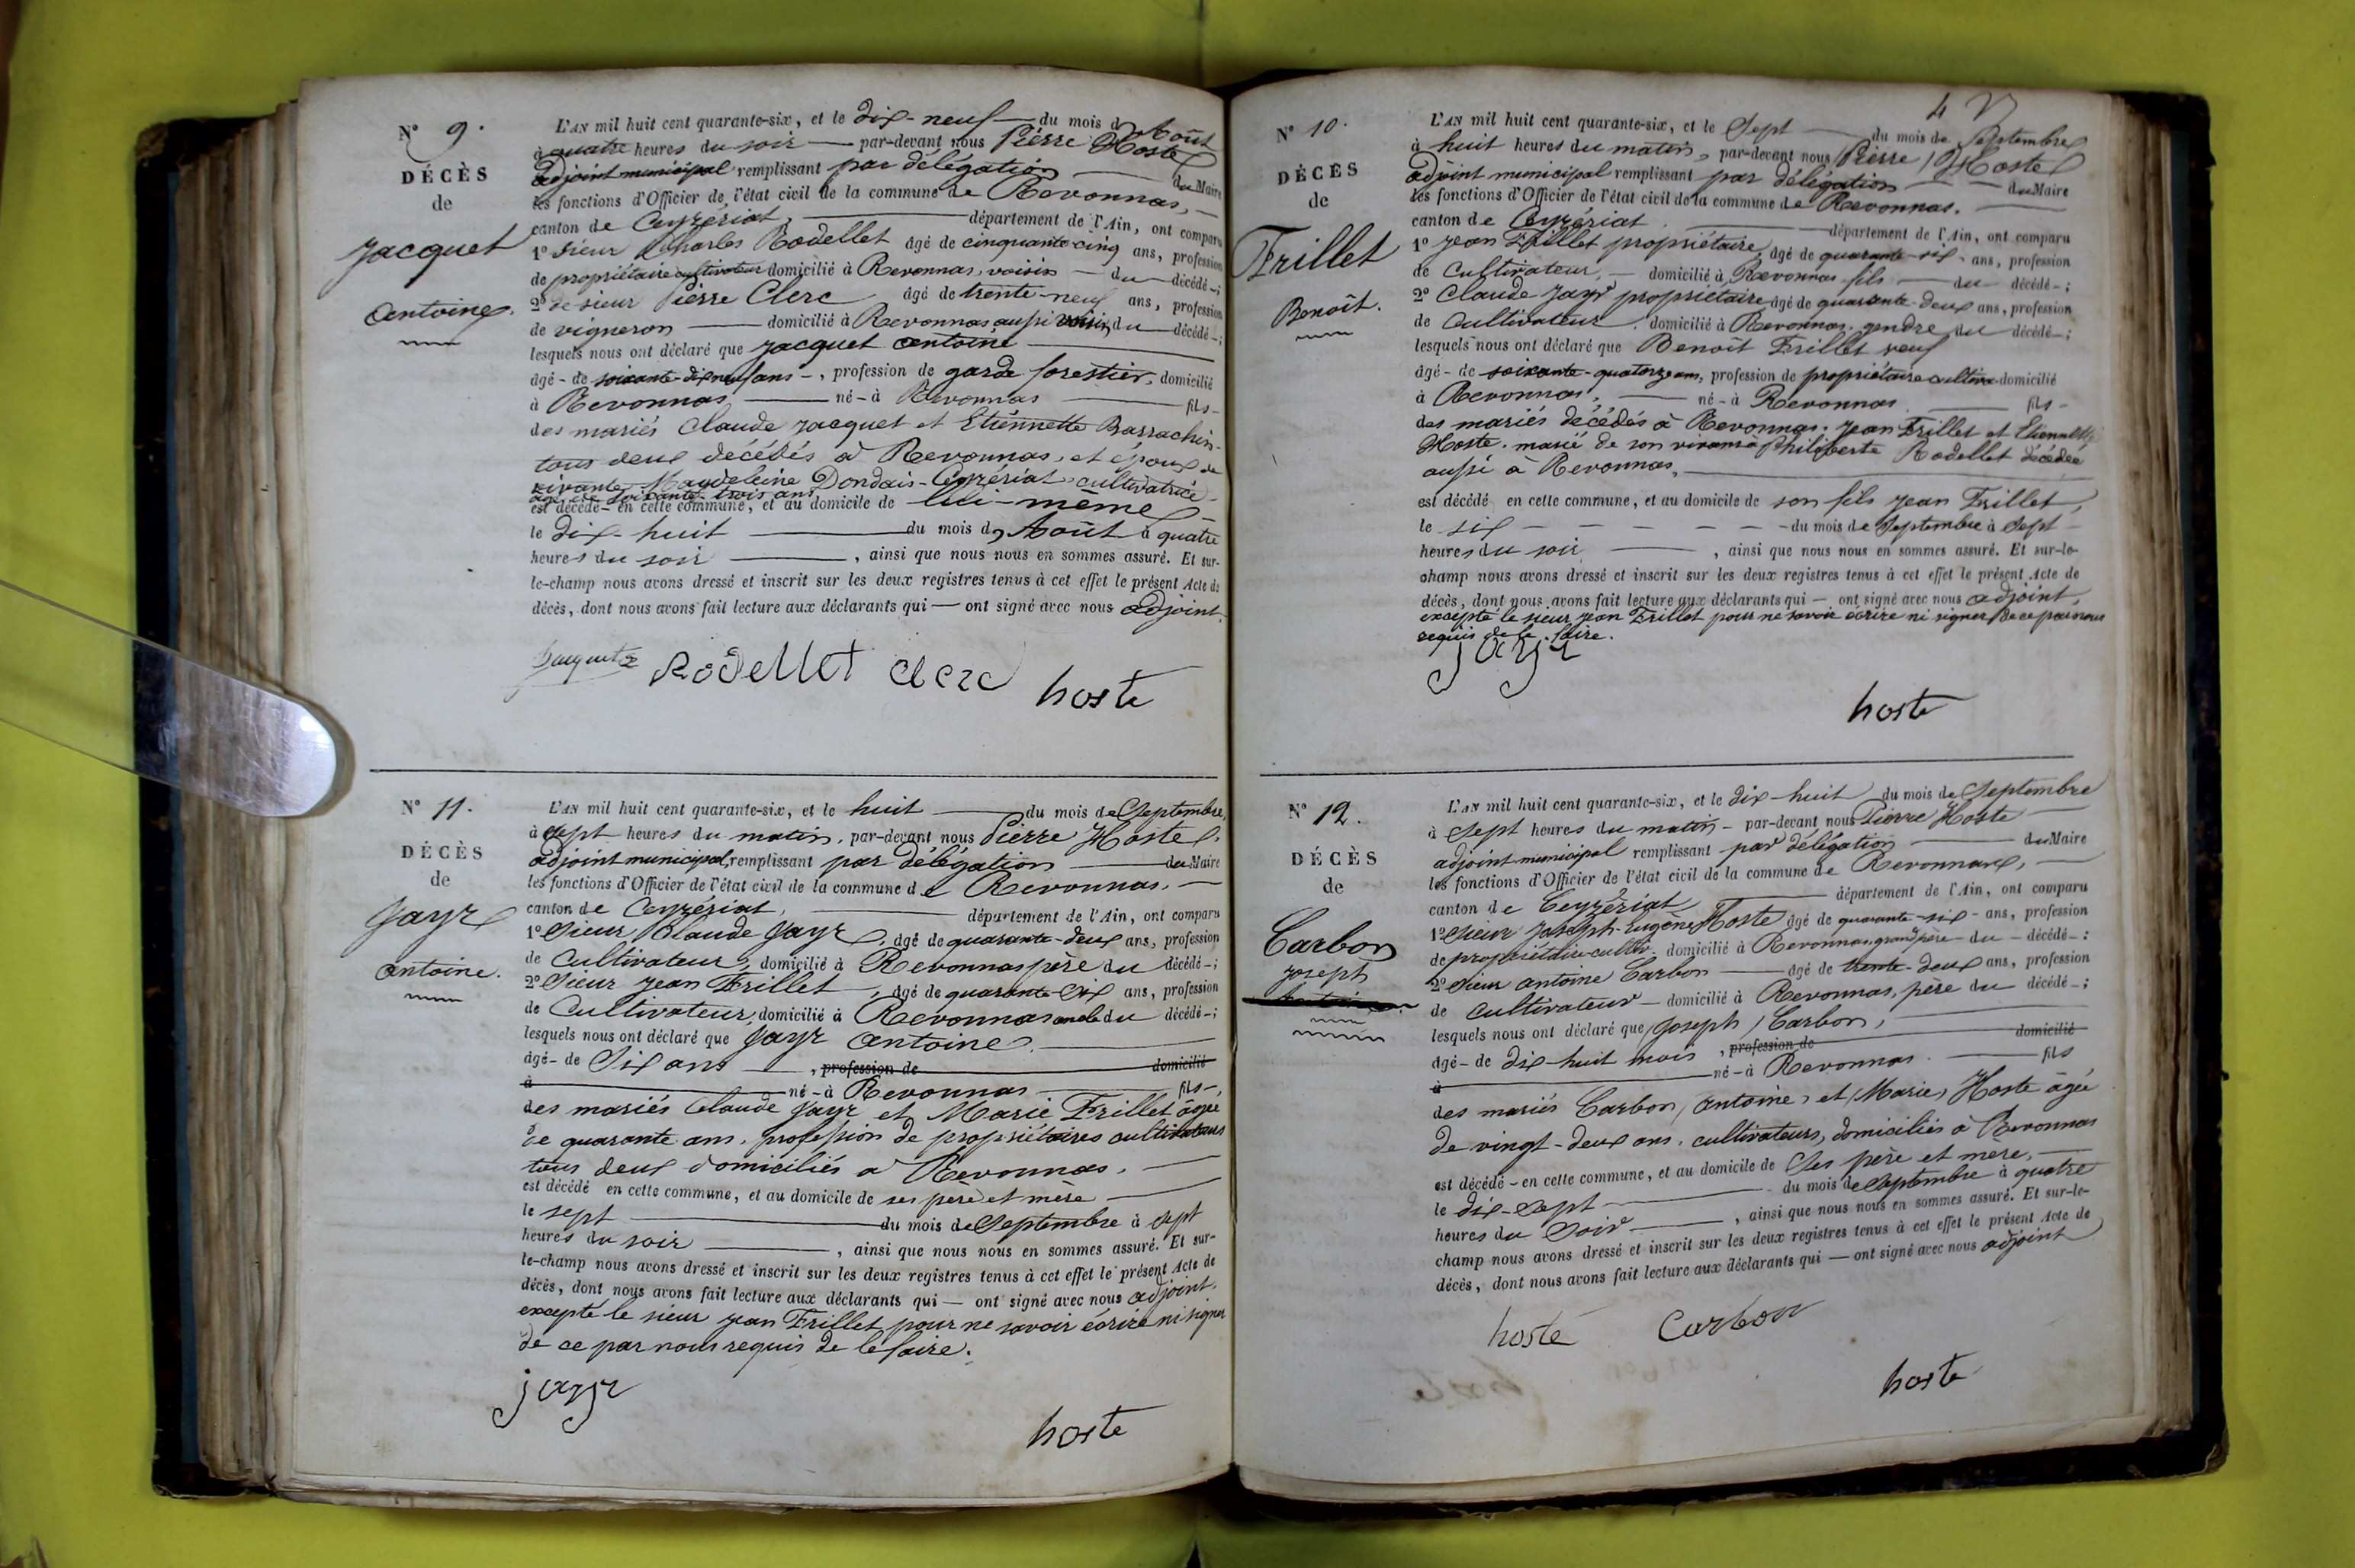 N° 9.
DÉCÈS
de
Jacquet
Antoine.
L'AN mil huit cent quarante-six, et le dix-neuf du mois d'Août
à quatre heures du soir par-devant nous Pierre Hoste
adjoint municipal remplissant par délégation du Maire
les fonctions d'Officier de l'état civil de la commune de Revonnas,
canton de Ceyzériat, département de l'Ain, ont comparu
1° sieur Charles Rodellet âgé de cinquante-cinq ans, profession
de propriétaire cultivateur domicilié à Revonnas, voisin du décédé;
2° de sieur Pierre Clerc âgé de trente-neuf ans, profession
de vigneron domicilié à Revonnas, aussi voisin, du décédé;
lesquels nous ont déclaré que Jacquet Antoine
âgé de soixante-dix neuf ans, profession de garde forestier, domicilié
à Revonnas né à Revonnas fils
des mariés Claude Jacquet et Etiennette Barrachin
tous deux décédés à Revonnas, et époux de
vivante, Magdeleine Dondais-Ceyzériat, cultivatrice
âgée de soixante-trois ans
est décédé en cette commune, et au domicile de lui-même
le dix-huit du mois d'Août à quatre
heures du soir, ainsi que nous nous en sommes assuré. Et sur-
le-champ nous avons dressé et inscrit sur les deux registres tenus à cet effet le présent Acte de
décès, dont nous avons fait lecture aux déclarants qui — ont signé avec nous adjoint.
Jacquet Rodellet Clerc hoste
N° 11.
DÉCÈS
de
Jayr
Antoine.
L'AN mil huit cent quarante-six, et le huit du mois de Septembre,
à Sept heures du matin, par-devant nous Pierre Hoste
adjoint municipal, remplissant par délégation du Maire
les fonctions d'Officier de l'état civil de la commune de Revonnas,
canton de Ceyzériat, département de l'Ain, ont comparu
1° Sieur Claude Jayr, âgé de quarante-deux ans, profession
de Cultivateur, domicilié à Revonnas père du décédé;
2° Sieur Jean Frillet, âgé de quarante-six ans, profession
de Cultivateur, domicilié à Revonnas oncle du décédé;
lesquels nous ont déclaré que Jayr Antoine
âgé de Six ans, profession de domicilié
à né à Revonnas fils
des mariés Claude Jayr et Marie Frillet âgée
de quarante ans, profession de propriétaires cultivateurs
tous deux domiciliés à Revonnas.
est décédé en cette commune, et au domicile de ses père et mère
le sept du mois de Septembre à sept
heures du soir, ainsi que nous nous en sommes assuré. Et sur-
le-champ nous avons dressé et inscrit sur les deux registres tenus à cet effet le présent Acte de
décès, dont nous avons fait lecture aux déclarants qui — ont signé avec nous adjoint.
excepté le sieur Jean Frillet pour ne savoir écrire ni signer
de ce par nous requis de le faire.
jayr
hoste
4
N° 10.
DÉCÈS
de
Frillet
Benoît.
L'AN mil huit cent quarante-six, et le Sept du mois de Septembre
à huit heures du matin, par-devant nous Pierre Hoste
adjoint municipal remplissant par délégation du Maire
les fonctions d'Officier de l'état civil de la commune de Revonnas.
canton de Ceyzériat département de l'Ain, ont comparu
1° Jean Frillet propriétaire, âgé de quarante-six ans, profession
de Cultivateur, domicilié à Revonnas fils du décédé;
2° Claude Jayr propriétaire âgé de quarante-deux ans, profession
de Cultivateur domicilié à Revonnas, gendre du décédé;
lesquels nous ont déclaré que Benoît Frillet veuf
âgé de soixante-quatorze ans, profession de propriétaire cultiva domicilié
à Revonnas, né à Revonnas fils
des mariés décédés à Revonnas, Jean Frillet et Etiennette
Hoste, marié de son vivant à Philiberte Rodellet décédée
aussi à Revonnas,
est décédé en cette commune, et au domicile de son fils Jean Frillet,
le six du mois de Septembre à Sept
heures du soir, ainsi que nous nous en sommes assuré. Et sur-le-
champ nous avons dressé et inscrit sur les deux registres tenus à cet effet le présent Acte de
décès, dont nous avons fait lecture aux déclarants qui — ont signé avec nous adjoint,
excepté le sieur Jean Frillet pour ne savoir écrire ni signer de ce par nous
requis de le faire.
jayr
hoste
N° 12.
DÉCÈS
de
Carbon
Joseph
L'AN mil huit cent quarante-six, et le dix-huit du mois de Septembre
à Sept heures du matin par-devant nous Pierre Hoste
adjoint municipal remplissant par délégation du Maire
les fonctions d'Officier de l'état civil de la commune de Revonnas,
canton de Ceyzériat département de l'Ain, ont comparu
1° Sieur Joseph-Eugène Hoste âgé de quarante-six ans, profession
de propriétaire-cultiv. domicilié à Revonnas, grand père du décédé;
2° Sieur Antoine Carbon âgé de trente-deux ans, profession
de cultivateur domicilié à Revonnas, père du décédé;
lesquels nous ont déclaré que Joseph Carbon, domicilié
âgé de dix-huit mois, profession de
à né à Revonnas fils
des mariés Carbon Antoine et Marie Hoste âgée
de vingt-deux ans, cultivateurs, domiciliés à Revonnas
est décédé en cette commune, et au domicile de Ses père et mère,
le dix-sept du mois de Septembre à quatre
heures du Soir, ainsi que nous nous en sommes assuré. Et sur-le-
champ nous avons dressé et inscrit sur les deux registres tenus à cet effet le présent Acte de
décès, dont nous avons fait lecture aux déclarants qui — ont signé avec nous adjoint
hoste Carbon
hoste